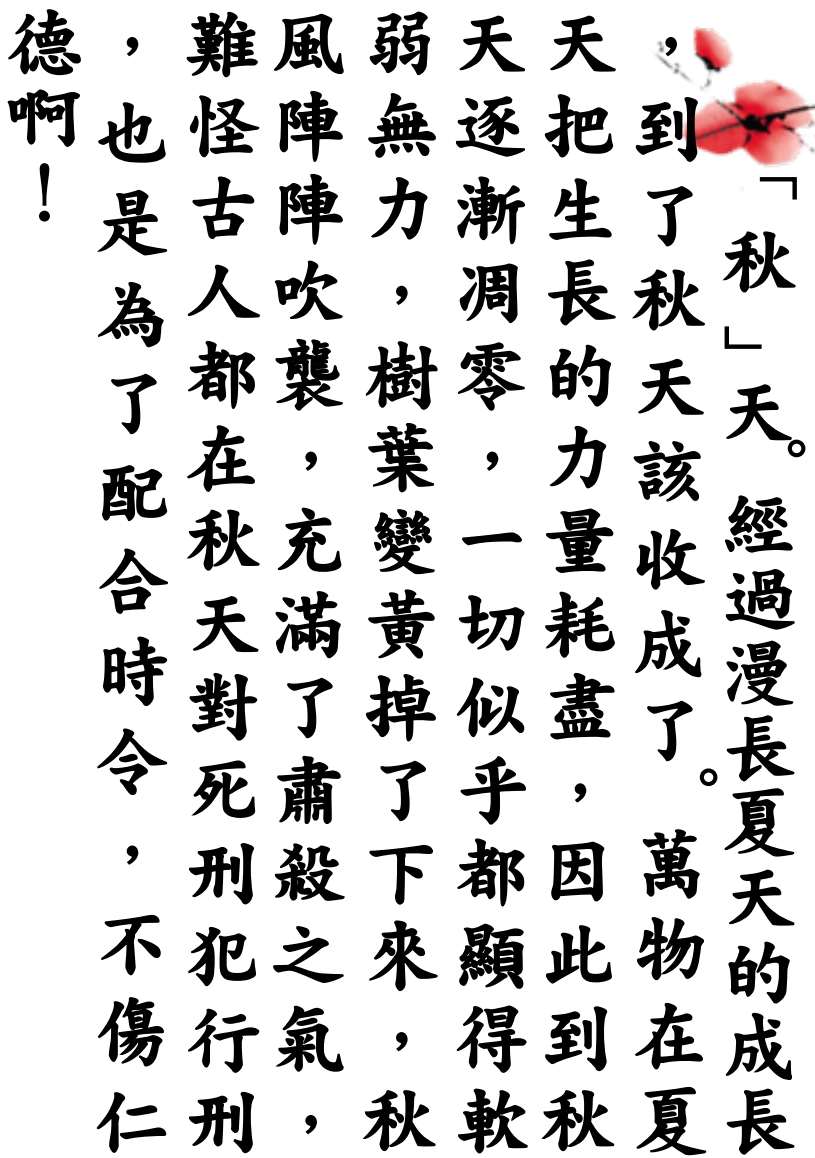 「秋」天。經過漫長夏天的成長
，到了秋天該收成了。萬物在夏
天把生長的力量耗盡，因此到秋
天逐漸凋零，一切似乎都顯得軟
弱無力，樹葉變黃掉了下來，秋
風陣陣吹襲，充滿了肅殺之氣，
難怪古人都在秋天對死刑犯行刑
，也是為了配合時令，不傷仁
德啊！